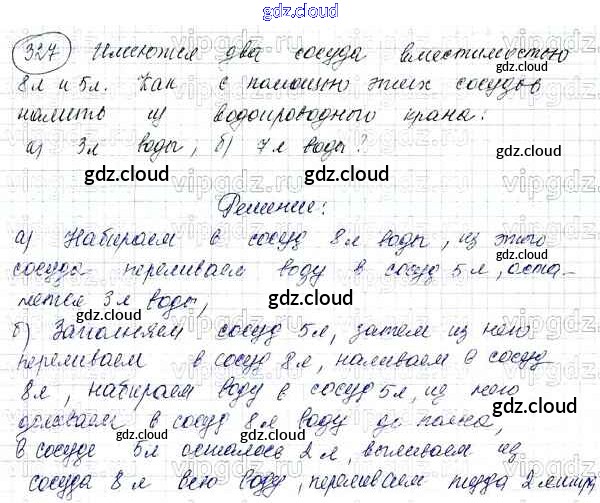 gdz.cloud
327 Имеются два сосуда вместимостью
8л и 5л. Как с помощью этих сосудов
налить из водопроводного крана:
а) 3л воды, б) 7л воды?
gdz.cloud gdz.cloud gdz.cloud
Решение:
а) Набираем в сосуд 8л воды, из этого
сосуда переливаем воду в сосуд 5л, оста-
нется 3л воды,
gdz.cloud gdz.cloud
б) Заполняем сосуд 5л, затем из него
переливаем в сосуд 8л, наливаем в сосуд
gdz.cloud
8л, набираем воду в сосуд 5л, из него
доливаем в сосуд 8л воду до полна,
gdz.cloud gdz.cloud gdz.cloud
в сосуде 5л осталось 2л, выливаем из
сосуда 8л всю воду, переливаем туда 2 литра,